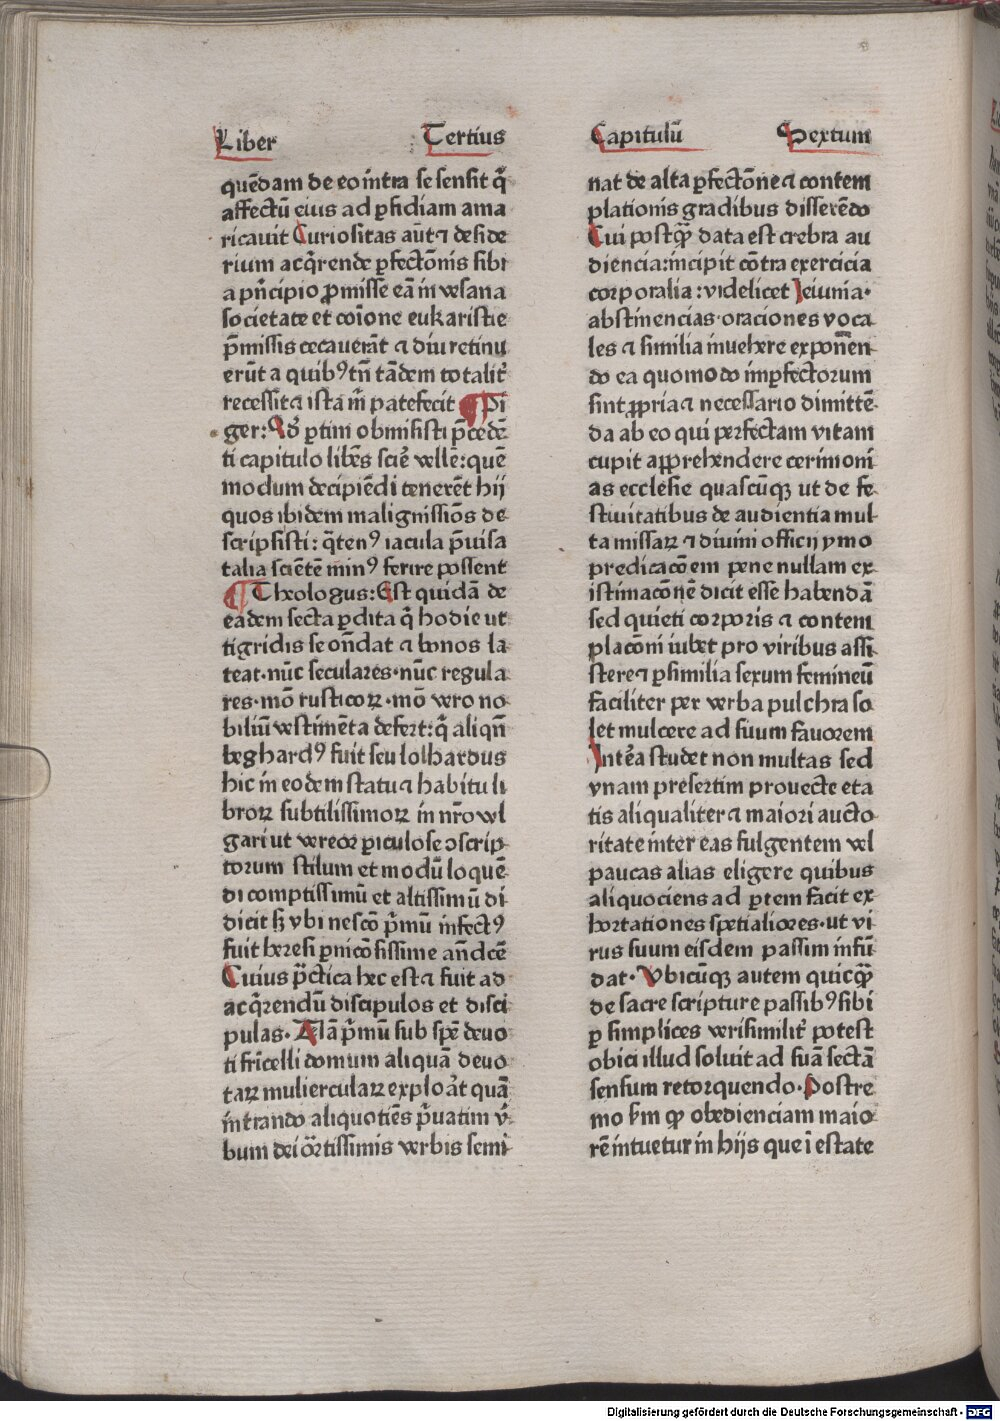 Liber Tertius
quēdam de eo intra se sensit q̄
affectū eius ad ꝑfidiam ama
ricauit Curiositas autē ⁊ deside
rium acq̄rende ꝑfectōnis sibi
a pⁱncipio ꝓmisse eā in vesana
societate et coīone eukaristie
p̄missis cecauerāt ⁊ diu retinu
erūt a quibꝰ tn̄ tādem totalit̄
recessit ⁊ ista m̄ patefecit ¶ Pi
ger: Ad ꝑtim obmisisti p̄cedē
ti capitulo libēs sciē vellē: quē
modum decipiēdi tenerēt hij
quos ibidem malignissiōs de
scripsisti: q̄tenꝰ iacula p̄uisa
talia sciētē minꝰ ferire possent
¶ Theologus: Est quidā de
eadem secta ꝑdita q̄ hodie ut
tigridis se on̄dat ⁊ bonos la
teat. nūc seculares. nūc regula
res. mō rusticoꝝ. mō vero no
biliū vestimēta defert: q̄ aliqn̄
beghardꝰ fuit seu lolhardus
hic in eodem statu ⁊ habitu li
broꝝ subtilissimoꝝ in nr̄o vl
gari ut vereor ꝑiculose ꝯscrip
torum stilum et modū loquē
di comptissimū et altissimū di
dicit sꝫ vbi nescō p̄mū infectꝰ
fuit heresi ꝑnicōsissime an̄dcē
Cuius p̄ctica hec est ⁊ fuit ad
acq̄rendū discipulos et disci
pulas. Nā p̄mū sub spē deuo
ti fr̄icelli domum aliquā deuo
taꝝ muliercularꝝ exploāt quā
intrando aliquotiēs p̄uatim v̄
bum dei ōr̄tissimis verbis semi
Capitulū Sextum
nat de alta ꝑfectōne ⁊ contem
plationis gradibus disserēdo
Cui postꝙ̄ data est crebra au
diencia: incipit cōtra exercicia
corporalia: videlicet Ieiunia.
abstinencias. oraciones voca
les ⁊ similia inuehere exponen̄
do ea quomodo imꝑfectorum
sint ꝓpria ⁊ necessario dimittē
da ab eo qui perfectam vitam
cupit apprehendere cerimoni
as ecclesie quascūqꝫ ut de fe
stiuitatibus de audientia mul
taꝝ missaꝝ ⁊ diuini officij ymo
predicacōem pene nullam ex
istimacōnē dicit esse habendā
sed quieti corporis ⁊ contem
placōni iubet pro viribus assi
stere ⁊ ꝑ similia sexum femineū
faciliter per verba pulchra so
let mulcere ad suum fauorem
Intēa studet non multas sed
vnam presertim prouecte eta
tis aliqualiter ⁊ maiori aucto
ritate inter eas fulgentem vel
paucas alias eligere quibus
aliquociens ad ꝑtem facit ex
hortationes spetialiores. ut vi
rus suum eisdem passim infū
dat. Vbicūqꝫ autem quicꝙ̄
de sacre scripture passibꝰ sibi
ꝑ simplices verisimilit̄ potest
obici illud soluit ad suā sectā
sensum retorquendo. Postre
mo s̄m ꝙ obedienciam maio
rē intuetur in hijs que ī estate
Digitalisierung gefördert durch die Deutsche Forschungsgemeinschaft - DFG